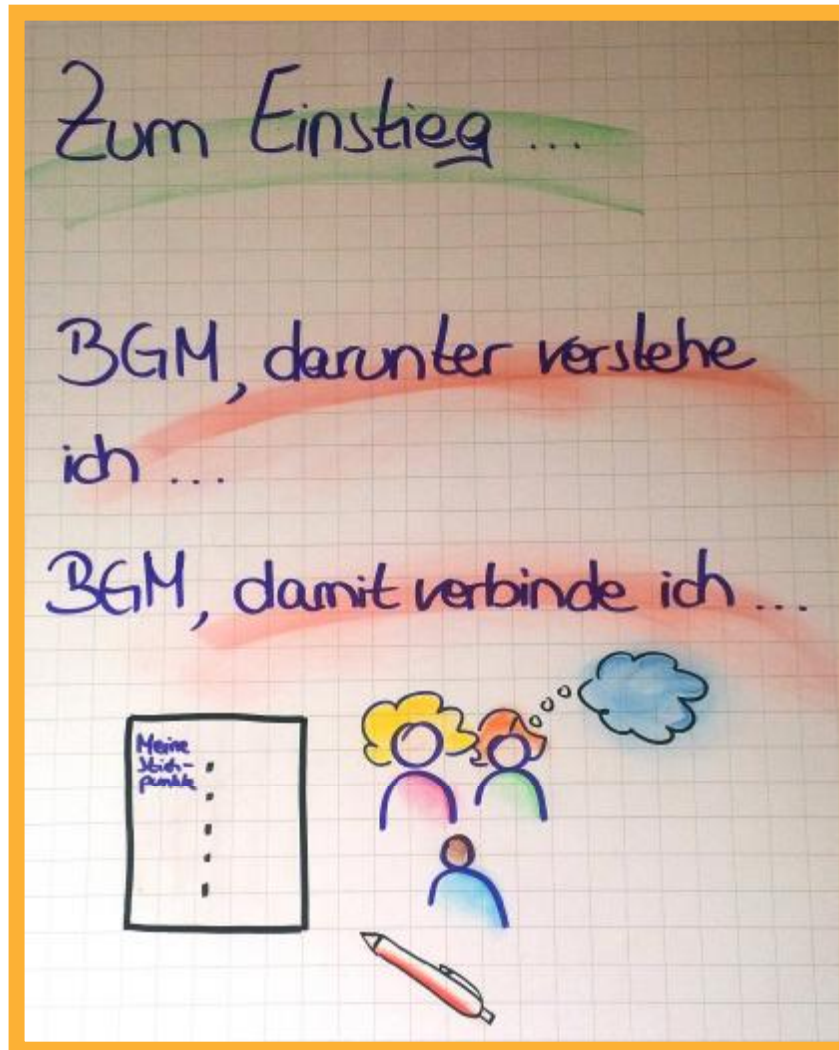 Zum Einstieg ...
BGM, darunter verstehe
ich ...
BGM, damit verbinde ich ...
Meine
Stich-
punkte